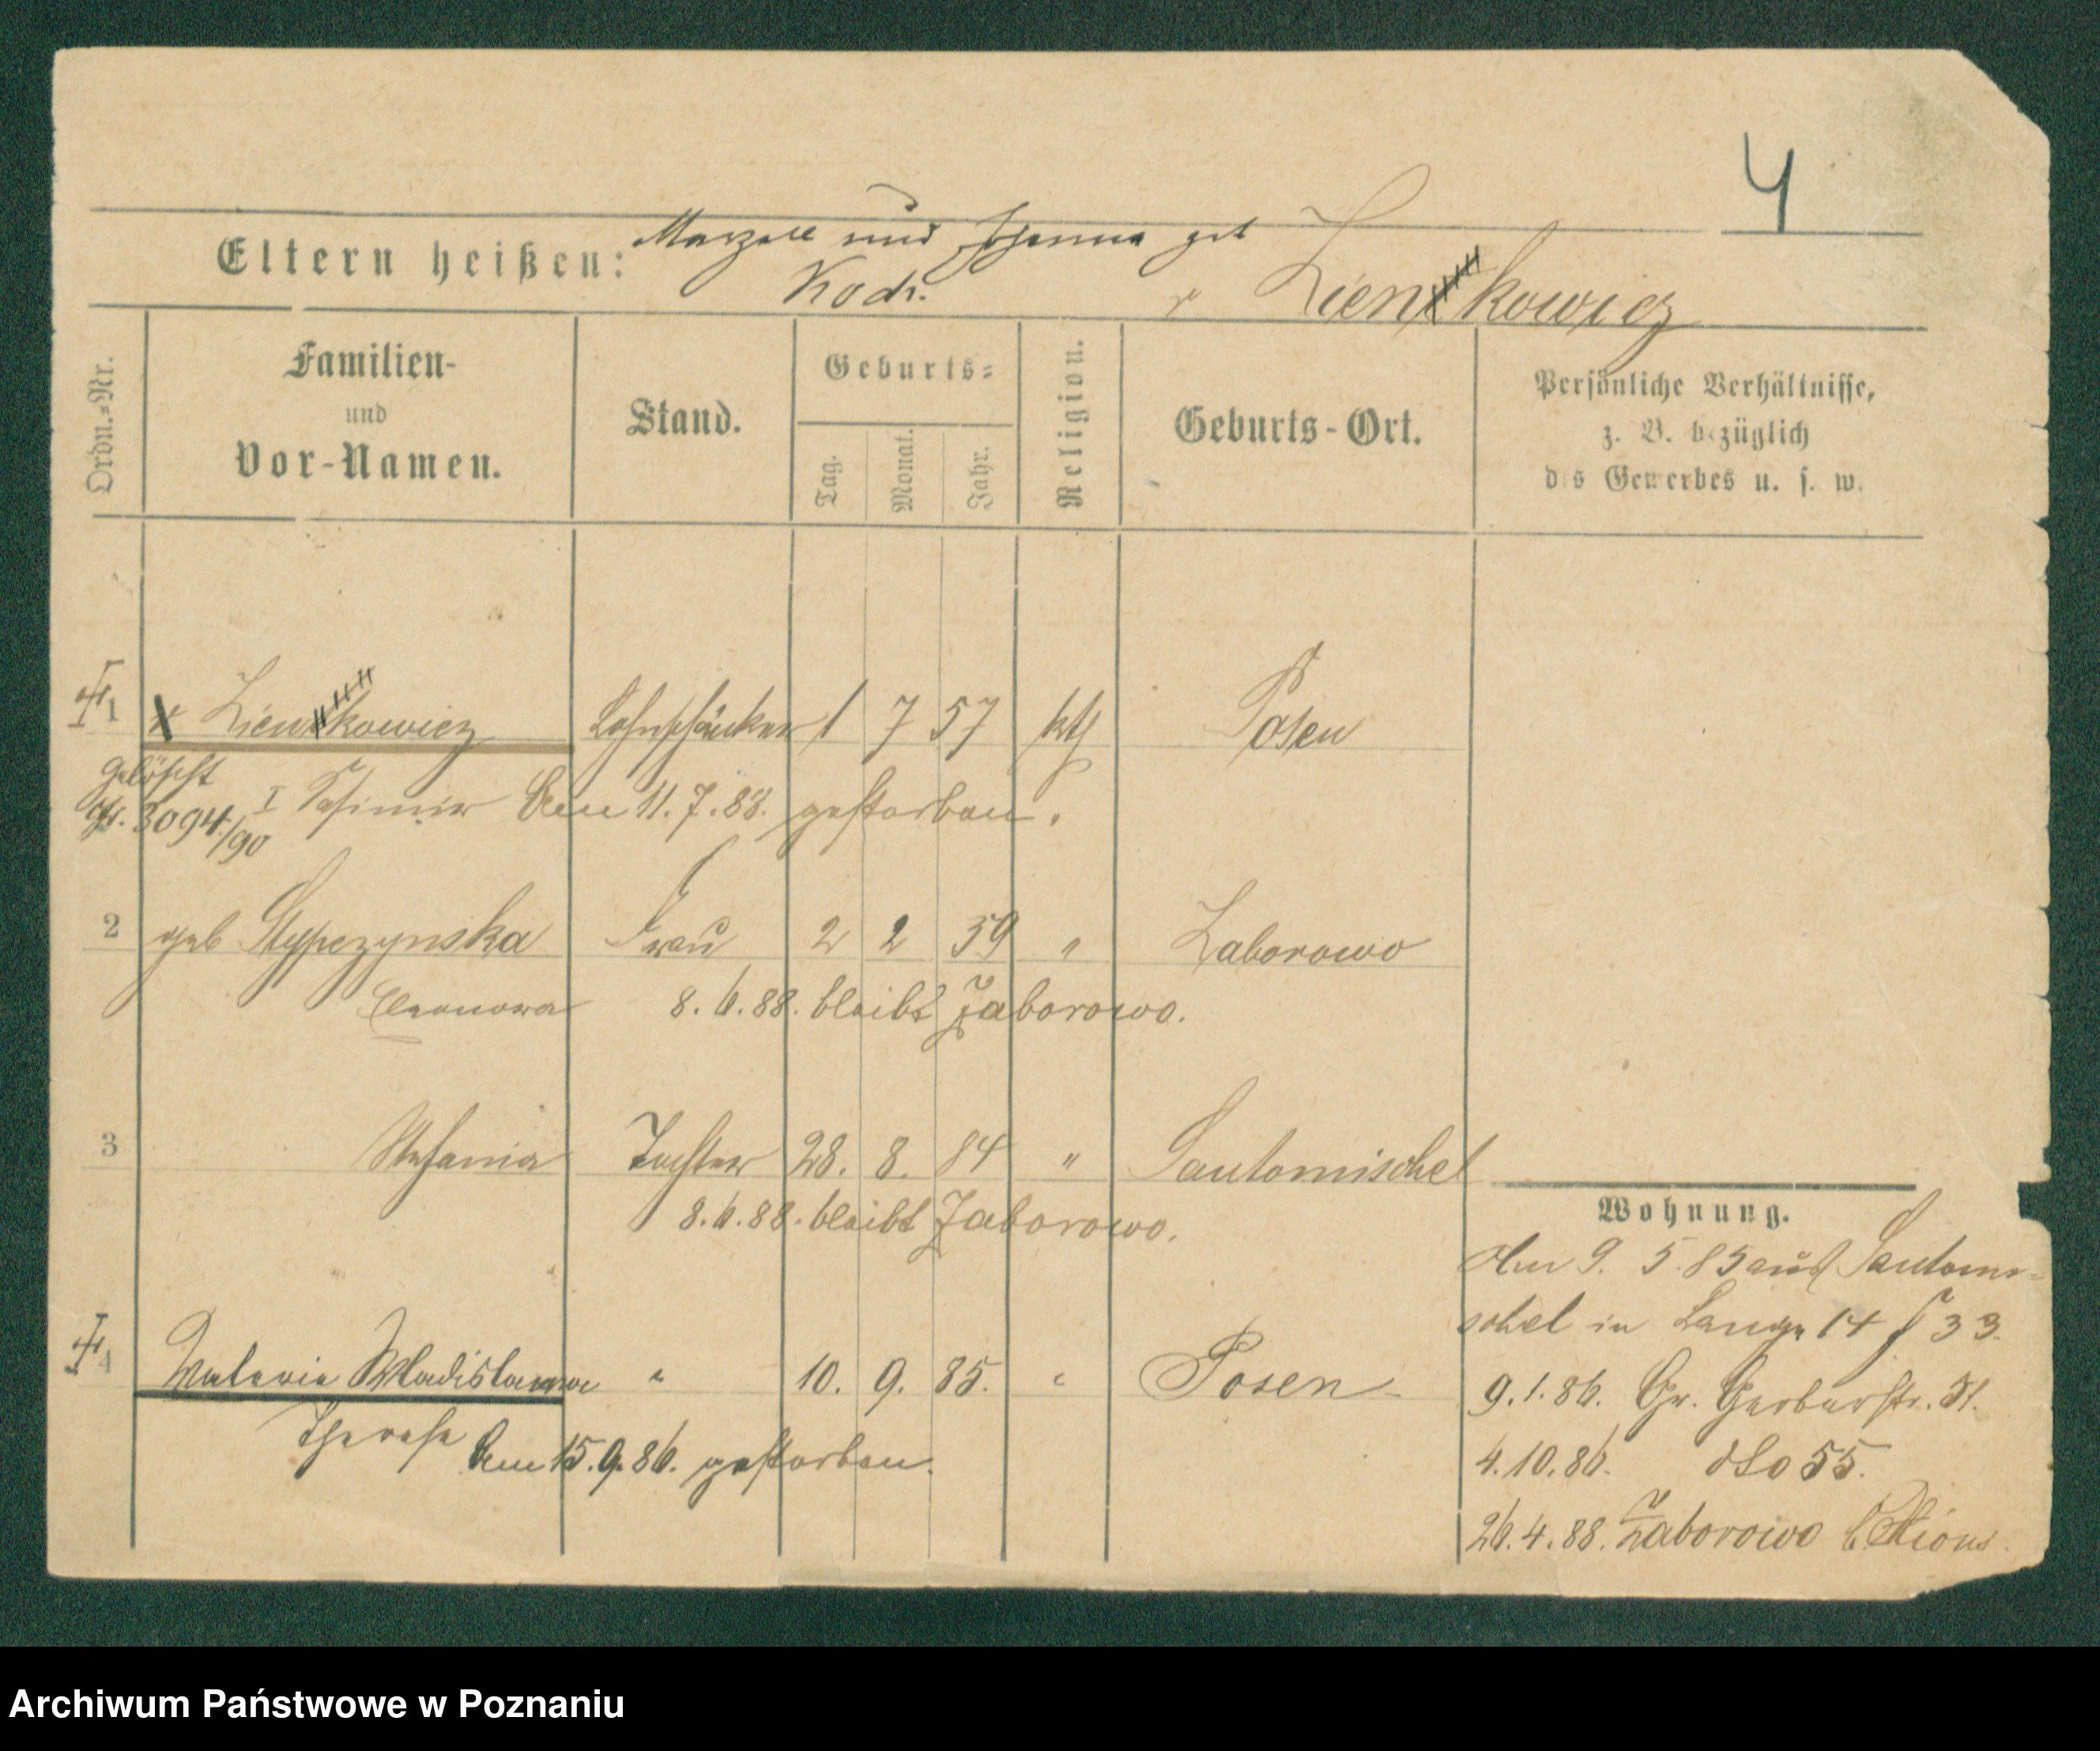 4
Eltern heißen: und geb
Zienkowicz
Ordn.=Nr.
Familien-
und
Vor-Namen.
Stand.
Geburts=
Tag.
Monat.
Jahr.
Religion.
Geburts-Ort.
Persönliche Verhältnisse,
z. B. bezüglich
des Gewerbes u. s. w.
1 Zienkowicz 1 7 57 kth Posen
gelöscht
3094/90 Kasimir Am 11.7.88. gestorben.
2 geb Stypczynska Frau 2 2 59 " Zaborowo
Eleonora 8.6.88. bleibt Zaborowo.
3 Stefania Tochter 28. 8. 84 " Santomischel
8.6.88. bleibt Zaborowo.
4 Valeria Wladislawa " 10. 9. 85. " Posen
Theresa Am 15.9.86. gestorben.
Wohnung.
Am 9. 5. 85 aus Santomi-
schel in Lange 14 33
9.1.86. Gr. Gerberstr. 51.
4.10.86. dto 55.
26.4.88. Zaborowo b. Xions
Archiwum Państwowe w Poznaniu